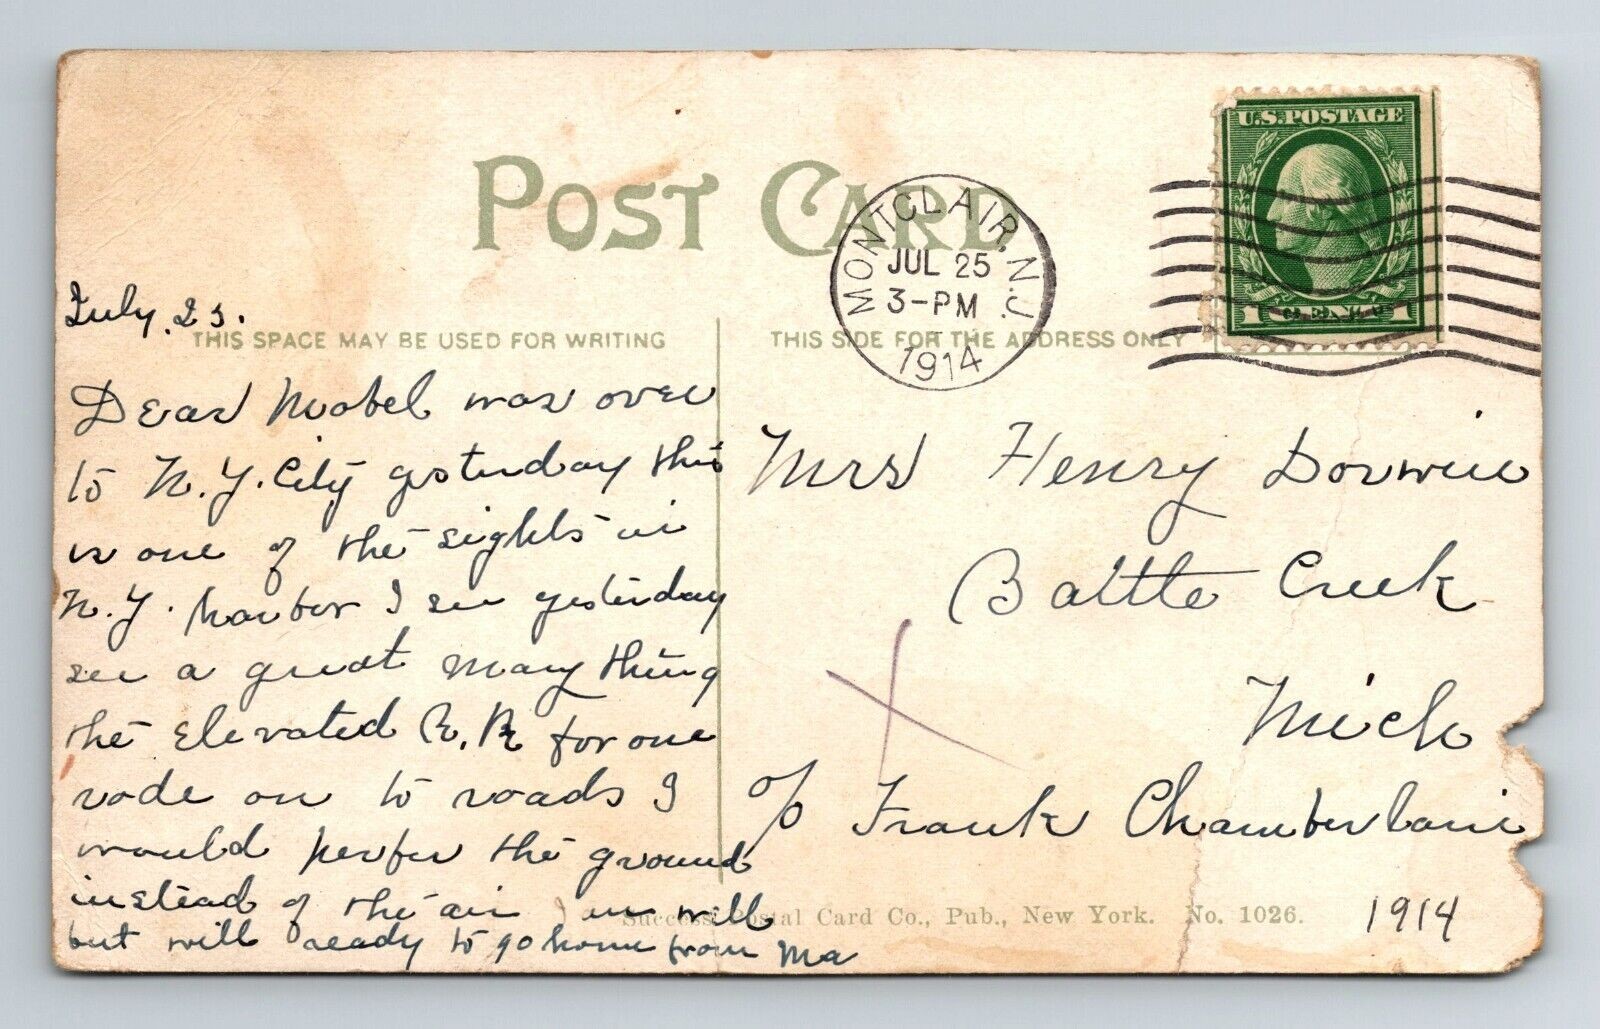 POST CARD
U.S. POSTAGE
MONTCLAIR, N.J.
JUL 25
3-PM
1914
July. 25.
THIS SPACE MAY BE USED FOR WRITING
THIS SIDE FOR THE ADDRESS ONLY
Dear Mabel was over
to N.Y. City yesterday this
is one of the sights in
N.Y. harbor I see yesterday
see a great many thing
the Elevated R.R for one
rode on to roads I
would perfer the ground
instead of the air I am well
but will ready to go home from Ma
Mrs Henry
Battle Creek
Mich
c/o Frank Chamberlain
Success Postal Card Co., Pub., New York. No. 1026.
1914